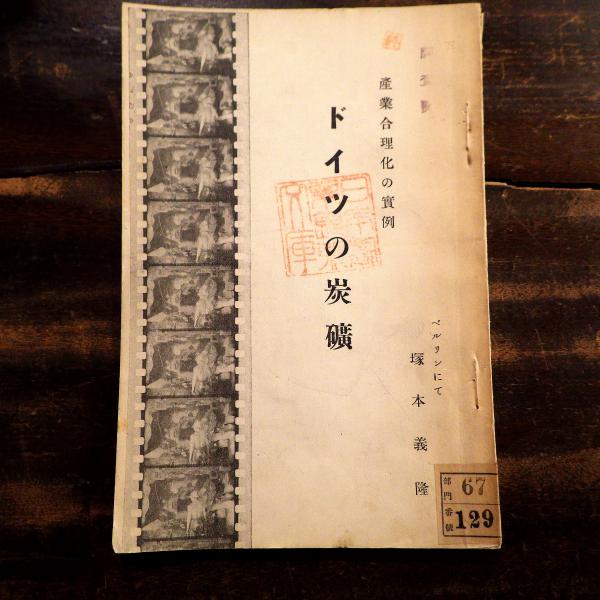 産業合理化の實例
ドイツの炭礦
ベルリンにて
塚本義隆
部門 67
番號 129
文庫